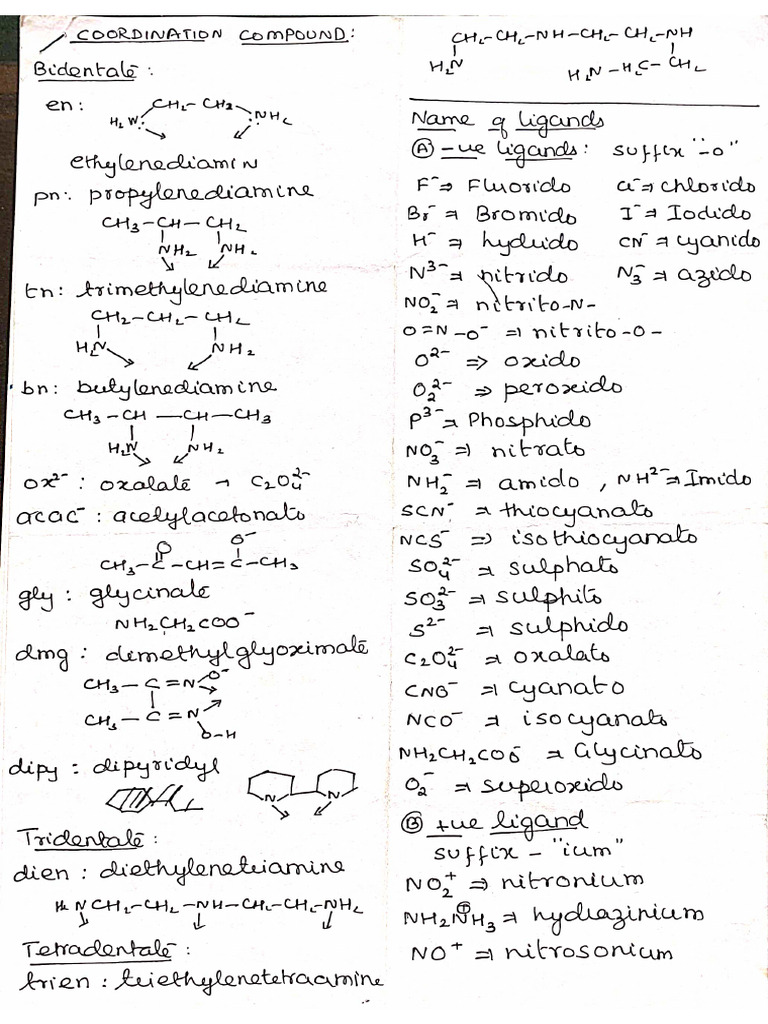 COORDINATION COMPOUND:
Bidentate:
en:
CH2 - CH2
H2N: :NH2
ethylenediamin
pn: propylenediamine
CH3 - CH - CH2
NH2 NH2
tn: trimethylenediamine
CH2 - CH2 - CH2
H2N NH2
bn: butylenediamine
CH3 - CH - CH - CH3
H2N NH2
ox2-: oxalate → C2O4^2-
acac-: acetylacetonato
O O-
CH3 - C - CH = C - CH3
gly: glycinate
NH2CH2COO-
dmg: dimethylglyoximate
CH3 - C = N - O-
CH3 - C = N
O-H
dipy: dipyridyl
N N
Tridentate:
dien: diethylenetriamine
H2NCH2-CH2-NH-CH2-CH2-NH2
Tetradentate:
trien: triethylenetetraamine
CH2-CH2-NH-CH2-CH2-NH
H2N H2N-H2C-CH2
Name of ligands
(A) -ve ligands: suffix "-o"
F- ⇒ Fluorido Cl- ⇒ chlorido
Br- ⇒ Bromido I- ⇒ Iodido
H- ⇒ hydrido CN- ⇒ cyanido
N3- ⇒ nitrido N3- ⇒ azido
NO2- ⇒ nitrito-N-
O=N-O- ⇒ nitrito-O-
O2- ⇒ oxido
O2^2- ⇒ peroxido
P3- ⇒ Phosphido
NO3- ⇒ nitrato
NH2- ⇒ amido, NH2- ⇒ Imido
SCN- ⇒ thiocyanato
NCS- ⇒ isothiocyanato
SO4^2- ⇒ sulphato
SO3^2- ⇒ sulphito
S2- ⇒ sulphido
C2O4^2- ⇒ oxalato
CNO- ⇒ cyanato
NCO- ⇒ isocyanato
NH2CH2COO- ⇒ Glycinato
O2- ⇒ superoxido
(B) +ve ligand
suffix - "ium"
NO2+ ⇒ nitronium
NH2N⊕H3 ⇒ hydrazinium
NO+ ⇒ nitrosonium